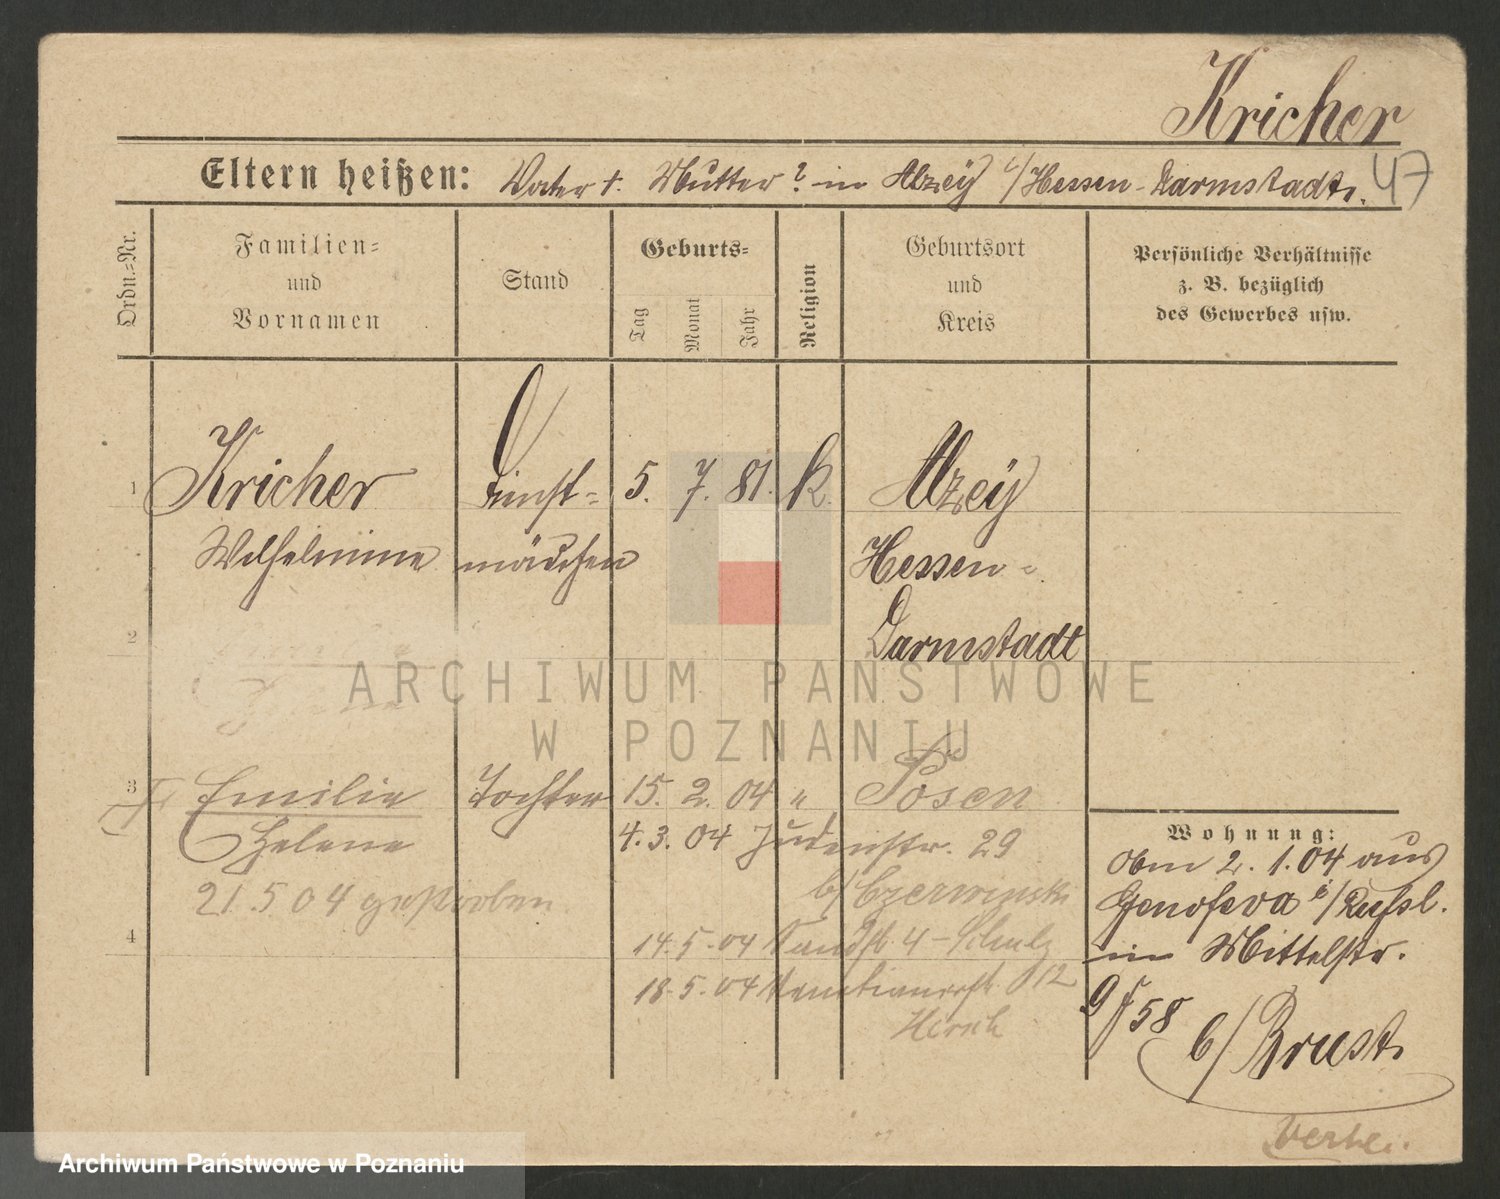 Kricher
47
Eltern heißen: Vater †. Mutter? in Alzey i/Hessen-Darmstadt.
Ordn.-Nr.
Familien- und Vornamen
Stand
Geburts-
Tag
Monat
Jahr
Religion
Geburtsort und Kreis
Persönliche Verhältnisse
z. B. bezüglich
des Gewerbes usw.
1 Kricher Dienst- 5. 7. 81. K. Alzey
Wilhelmine mädchen Hessen-
2 Darmstadt
ARCHIWUM PAŃSTWOWE
W POZNANIU
3 Emilie Tochter 15. 2. 04 " Posen
Helene 4. 3. 04 Judenstr. 29
21 5 04 gestorben b/ Czerwinski
4 14. 5. 04 Sandstr. 4 - Schulz
18. 5. 04 Venetianerstr. 12
Hirsch
Wohnung:
2. 1. 04 aus
Genofeva i/Russl.
in Mittelstr.
b/ Brust
Archiwum Państwowe w Poznaniu